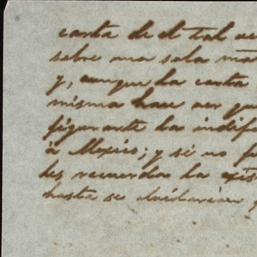 carta de el tal
sobre una sola
y, aunque la carta
misma hace ver que
figurante la
á Mexico; y si no
les recuerda la
hasta se olvidarian